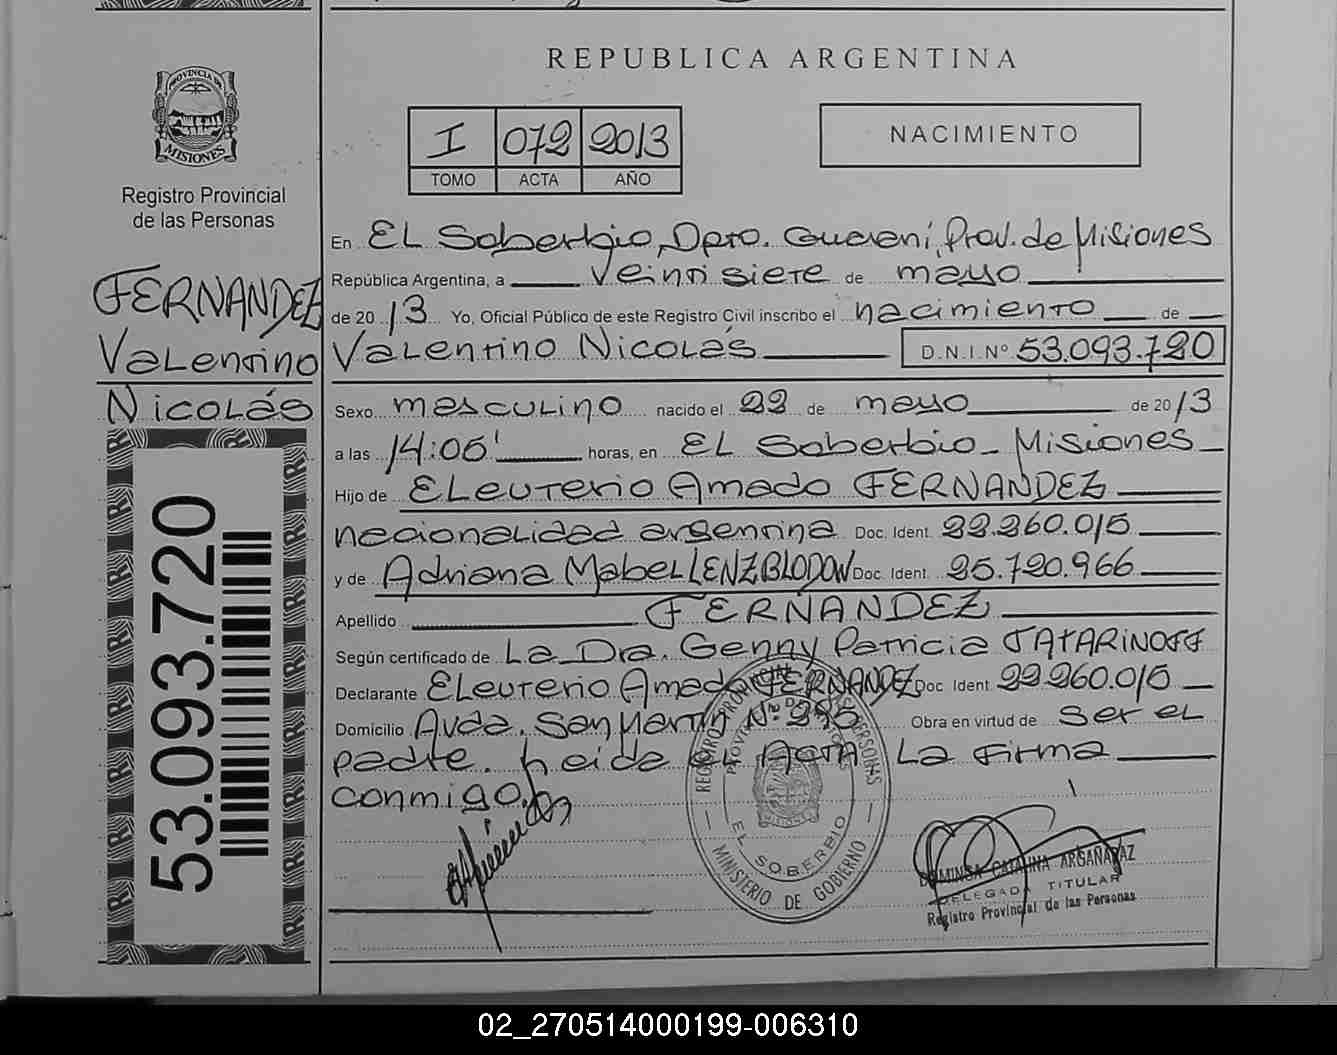 REPUBLICA ARGENTINA
PROVINCIA DE
MISIONES
Registro Provincial
de las Personas
I 072 2013
TOMO ACTA AÑO
NACIMIENTO
FERNANDEZ
Valentino
Nicolás
53.093.720
En EL Soberbio, Dpto. Guaraní, Prov. de Misiones
República Argentina, a veintisiete de mayo
de 2013 Yo, Oficial Público de este Registro Civil inscribo el nacimiento de
Valentino Nicolás D.N.I.Nº 53.093.720
Sexo masculino nacido el 22 de mayo de 2013
a las 14:05' horas, en EL Soberbio - Misiones
Hijo de Eleuterio Amado FERNANDEZ
nacionalidad argentina Doc. Ident. 22.260.015
y de Adriana Mabel LENZ BLODOW Doc. Ident. 25.720.966
Apellido FERNANDEZ
Según certificado de La Dra. Genny Patricia TATARINOFF
Declarante Eleuterio Amado FERNANDEZ Doc Ident. 22.260.015
Domicilio Avda. San Martín Nº 295 Obra en virtud de ser el
padre. Leida el Acta La firma
conmigo.
REGISTRO PROVINCIAL DE LAS PERSONAS
MINISTERIO DE GOBIERNO
EL SOBERBIO
CATALINA ARGAÑARAZ
DELEGADA TITULAR
Registro Provincial de las Personas
02_270514000199-006310